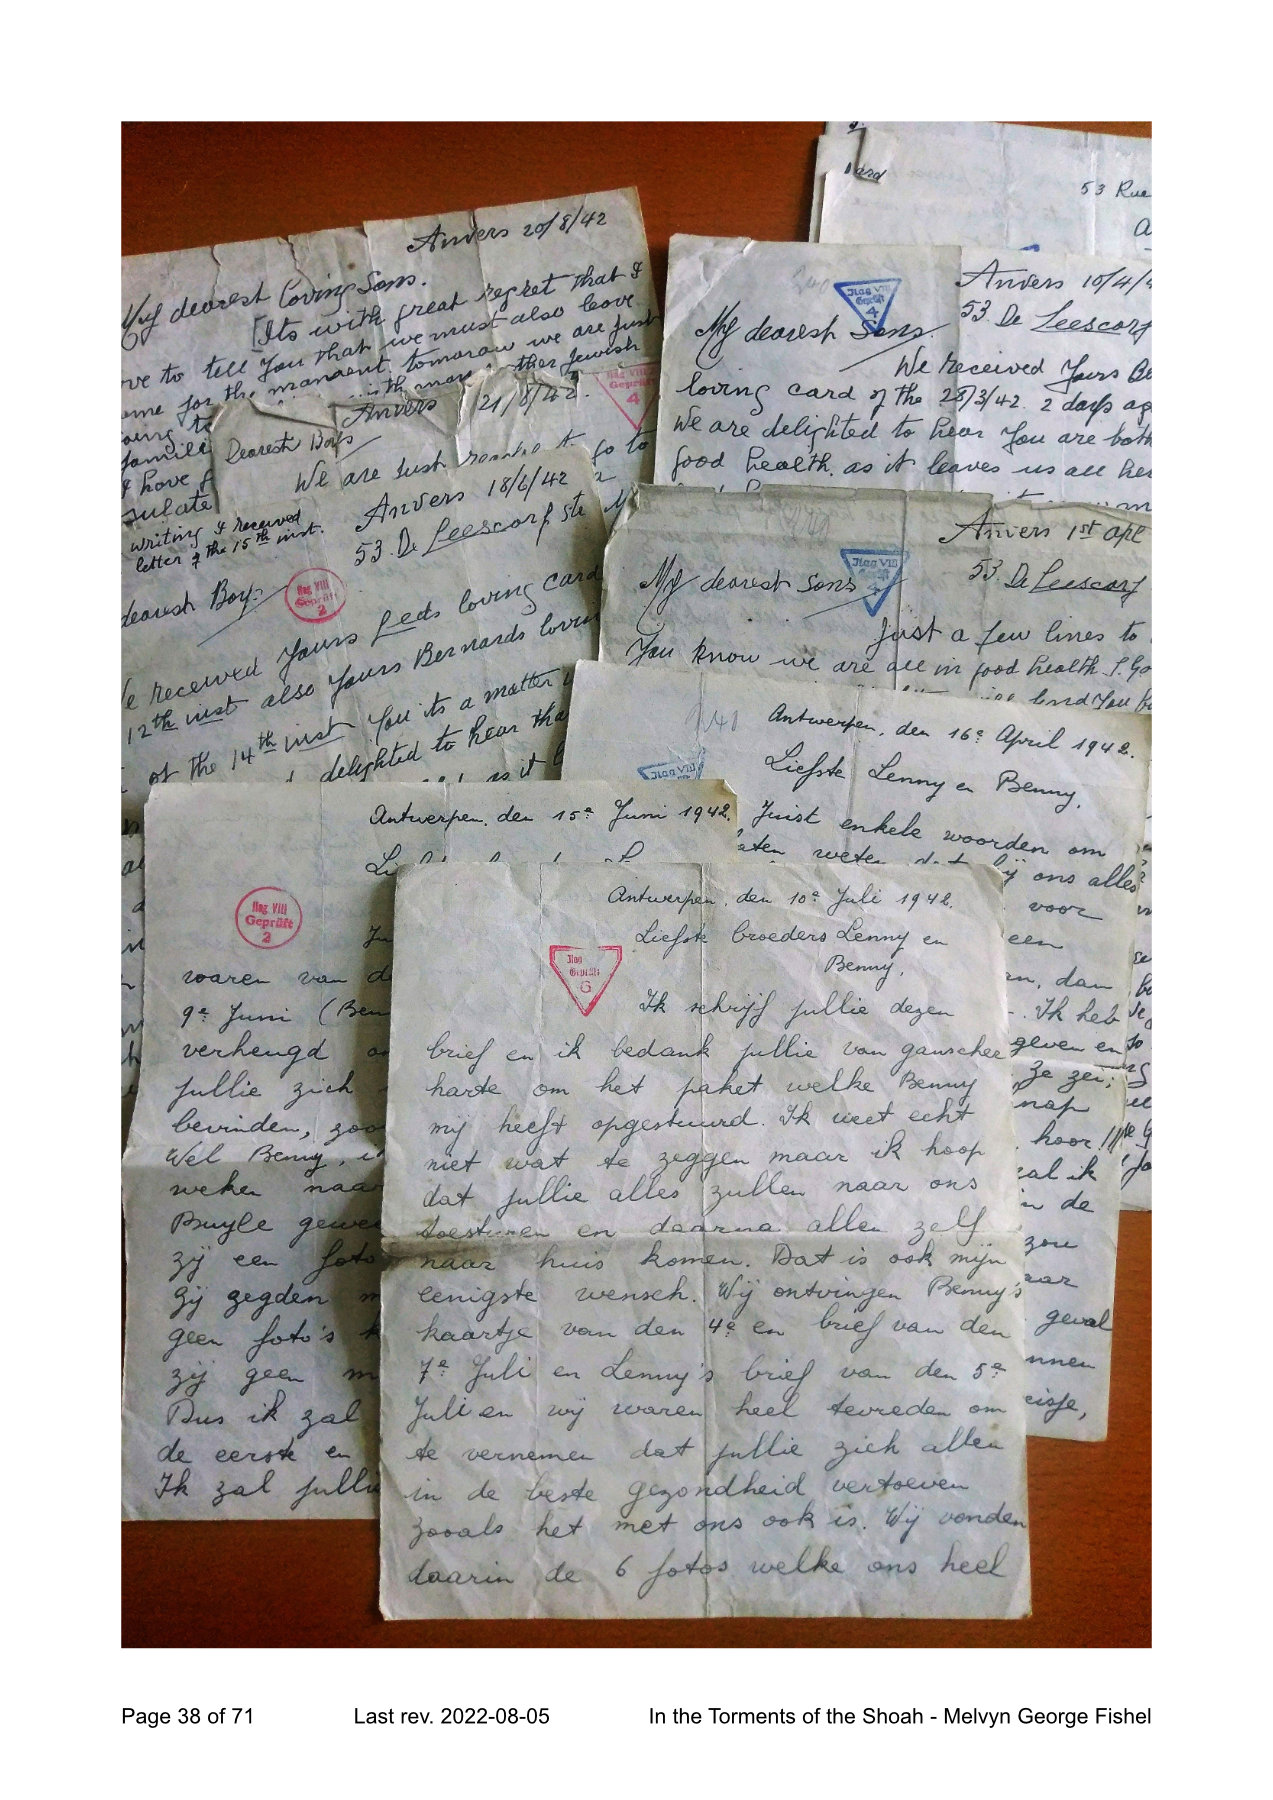 ard
53 Rue
Anvers 20/8/42
My dearest loving Sons.
Its with great regret that I
ve to tell You that we must also leave
ome for the moment, tomorow we are just
oing to
other Jewish
famili
I have f
sulate
Ilag VIII
Geprüft
4
Anvers 21/8/42.
Dearest Boys
We are Just
go to
Ilag VIII
Geprüft
4
Anvers 10/4/4
53. De Leescorf
My dearest Sons.
We received Yours Be
loving card of the 28/3/42. 2 days ag
We are delighted to hear You are both
good health. as it leaves us all her
Anvers 18/6/42
53. De Leescorf Str
writing I received
letter of the 15th inst.
dearest Boys
Ilag VIII
Geprüft
2
e received Yours Leds loving card
12th inst also Yours Bernards lovin
of the 14th inst You its a matter
delighted to hear tha
as it
Anvers 1st Ap
53. De Leescorf
Ilag VIII
Geprüft
4
My dearest Sons
Just a few lines to
You know we are all in good health
240
Antwerpen, den 16e April 1942.
Ilag VIII
Liefste Lenny en Benny,
Juist enkele woorden om
aten weten dat bij ons alles
voor
een
n, dan
Ik heb
geven en
ze zei;
hoor
zal ik
in de
zou
aar
geval
nnen
eisje,
Antwerpen, den 15e Juni 1942.
Ilag VIII
Geprüft
2
waren van d
9e Juni (Ben
verheugd
jullie zich
bevinden, zoo
Wel Benny, i
weken naa
Bruyle gewee
zij een foto
Zij zegden m
geen foto's k
zij geen m
Dus ik zal
de eerste en
Ik zal julli
Antwerpen, den 10e Juli 1942.
Liefste broeders Lenny en
Benny,
Ilag
Geprüft
6
Ik schrijf jullie dezen
brief en ik bedank jullie van ganscher
harte om het paket welke Benny
mij heeft opgestuurd. Ik weet echt
niet wat te zeggen maar ik hoop
dat jullie alles zullen naar ons
toesturen en daarna allen zelf
naar huis komen. Dat is ook mijn
eenigste wensch. Wij ontvingen Benny's
kaartje van den 4e en brief van den
7e Juli en Lenny's brief van den 5e
Juli en wij waren heel tevreden om
te vernemen dat jullie zich allen
in de beste gezondheid vertoeven
zooals het met ons ook is. Wij vonden
daarin de 6 fotos welke ons heel
Page 38 of 71 Last rev. 2022-08-05 In the Torments of the Shoah - Melvyn George Fishel